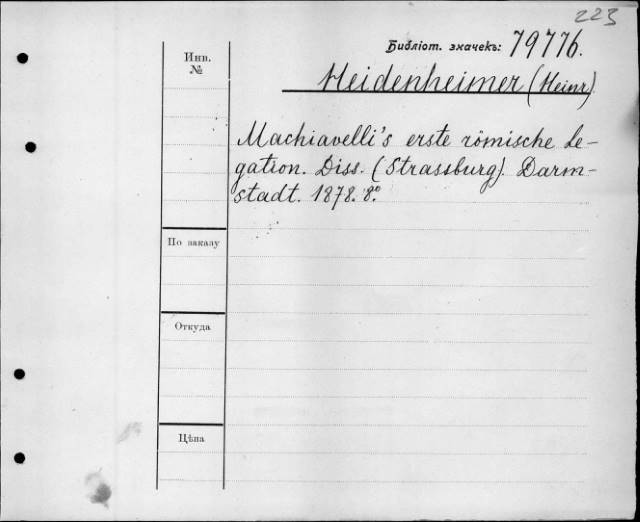 223
Библіот. значекъ: 79776.
Инв.
№
Heidenheimer (Heinr).
Machiavelli's erste römische Le-
gation. Diss. (Strassburg). Darm-
stadt. 1878. 8º.
По заказу
Откуда
Цѣна